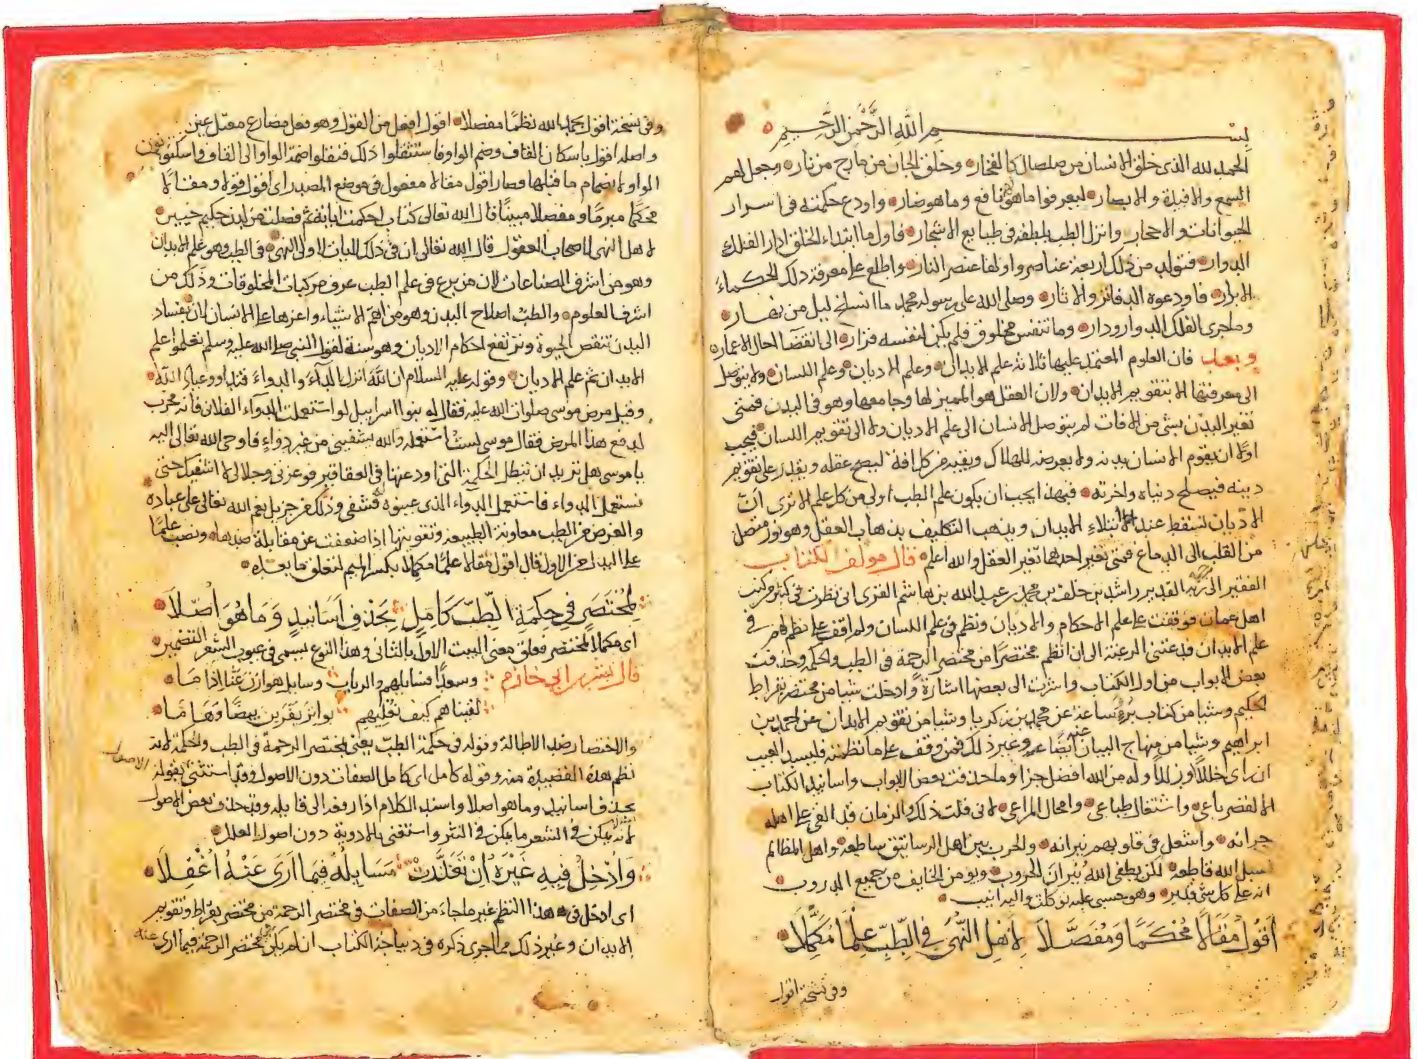 بسم الله الرحمن الرحيم
الحمد لله الذى خلق الانسان من صلصال كالفخار وخلق الجان من مارج من نار وجعل لهم
السمع والافيدة والابصار ليعرفوا ما هو نافع وما هو ضار واودع حكمته فى اسرار
الحيوانات والاحجار وانزل الطب بلطفه فى طبايع الاشجار فاول ما ابتداء الخلق ادار الفلك
الدوار فتولد من ذلك اربعة عناصر واولها عنصر النار واطلع على معرفة ذلك الحكماء
الابرار فاودعوه الدفاتر والاثار وصلى الله على رسوله محمد ما انسلخ ليل من نهار
وما جرى الفلك الدوار ودار وما تنفس مخلوق فلم يكن لنفسه قرار الى انقضا اجال الاعمار
وبعد فان العلوم المعتمد عليها ثلاثة علم الابدان وعلم الاديان وعلم اللسان ولا يتوصل
الى معرفتها الا بتقويم الابدان ولان العقل هو المميز لها وجامعها وهو فى البدن فمتى
تغير البدن بشئ من الافات لم يتوصل الانسان الى علم الاديان ولا الى تقويم اللسان فيجب
اولا ان يقوم الانسان بدنه ولا يعرضه للهلاك ويقيه من كل افة ليصح عقله ويقدر على تقويم
دينه فيصلح دنياه واخرته فبهذا يجب ان يكون علم الطب اولى من كل علم الا ترى ان
الاديان تسقط عند ابتلاء الابدان ويذهب التكليف بذهاب العقل وهو نور متصل
من القلب الى الدماغ فمتى تغير احدهما تغير العقل والله اعلم قال مولف الكتاب
الفقير الى ربه القدير راشد بن خلف بن محمد بن عبد الله بن هاشم القرى انى نظرت فى كثير من كتب
اهل عمان فوقفت على علم الاحكام والاديان ونظم فى علم اللسان ولم اقف على نظم لهم فى
علم الابدان فدعتنى الرغبة الى ان انظم مختصرا من مختصر الرحمة فى الطب والحكمة وحذفت
بعض الابواب من اول الكتاب واشرت الى بعضها اشارة وادخلت شيا من مختصر بقراط
الحكيم وشيا من كتاب برء ساعة عن محمد بن زكريا وشيا من تقويم الابدان عن احمد بن
ابراهيم وشيا من منهاج البيان عنه ايضا وغير ذلك فمن وقف على ما نظمته فليسد العيب
ان راى خللا او زللا وله من الله افضل جزا وما حذفت بعض الابواب واسانيد الكتاب
الا لقصر باعى واشتغال طباعى وامحال المراعى لانى قلت ذلك والزمان قد القى على اهله
جرانه واشتعل فى قلوبهم نيرانه والحرب بين اهل الرساتيق ساطعة واهل المظالم
لسبل الله قاطعة لكن يطفى الله نيران الحروب ويومن الخايف من جميع الدروب
انه على كل شئ قدير وهو حسبى عليه توكلت واليه انيب
اَقُولُ مَقَالًا مُحْكَمًا وَمُفَصَّلَا لِاَهْلِ النُّهَى فِي الطِّبِّ عِلْمًا مُكَمَّلَا
وفى نسخة اقول
وفى نسخة اقول بحمد الله نظما مفصلا اقول افعل من القول وهو فعل مضارع معتل عين
واصله اقول باسكان القاف وضم الواو فاستثقلوا ذلك فنقلوا ضمة الواو الى القاف واسكنوا
الواو لانضمام ما قبلها فصار اقول مقالا مفعول فى موضع المصدر اى اقول قولا ومقالا
محكما مبرما ومفصلا مبينا قال الله تعالى كتاب احكمت اياته ثم فصلت من لدن حكيم خبير
لاهل النهى لاصحاب العقول قال الله تعالى ان فى ذلك لايات لاولى النهى فى الطب وهو علم الابدان
وهو من اشرف الصناعات لان من برع فى علم الطب عرف مركبات المخلوقات وذلك من
اشرف العلوم والطب اصلاح البدن وهو من اهم الاشياء واعزها على الانسان لان بفساد
البدن تنقص الحيوة وترتفع احكام الاديان وهو سنة لقول النبى صلى الله عليه وسلم تعلموا علم
الابدان ثم علم الاديان وقوله عليه السلام ان الله انزل الداء والدواء فتداووا عباد الله
وقيل مرض موسى صلوات الله عليه فقال له بنوا اسراييل لو استعملت الدواء الفلان فانه مجرب
لدفع هذا المرض فقال موسى لست استعمله والله يشفينى من غير دواء فاوحى الله تعالى اليه
يا موسى هل تريد ان تبطل الحكمة التى اودعتها فى العقاقير فوعزتى وجلالى لا اشفيك حتى
تستعمل الدواء فاستعمل الدواء الذى عينوه له فشفى وذلك من جزيل نعم الله تعالى على عباده
والغرض من الطب معاونة الطبيعة وتقويتها اذا ضعفت عن مقابلة ضدها ونصب علما
على البدل من الاول قال اقول مقالا علما مكملا بكسر الميم لتعلق ما بعده
لِمُخْتَصَرٍ فِي حِكْمَةِ الطِّبِّ كَامِلٍ بِحَذْفِ اَسَانِيدٍ وَمَا هُوَ اَصَّلَا
اى مكملا لمختصر فعلق معنى البيت الاول بالثانى وهذا النوع يسمى فى عيوب الشعر التضمين
قال بشر بن ابى خازم وسعدا فسايلهم والرباب وسايل هوازن عنا اذا ما
لقيناهم كيف نعليهم بواتر يفرين بيضا وهاما
والاختصار ضد الاطالة وقوله فى حكمة الطب يعنى مختصر الرحمة فى الطب والحكمة لانه
نظم هذه القصيدة منه وقوله كامل اى كامل الصفات دون الاصول وقد استثنى بقوله
بحذف اسانيد وما هو اصلا واسند الكلام اذا رفع الى قايله وقد حذف بعض الاصول
لانه يمكن فى الشعر ما يمكن فى النثر واستغنى بالادوية دون اصول العلل
وَاَدْخَلَ فِيهِ غَيْرَهُ اِنْ تَعَذَّرَتْ مَسَايِلُهُ فِيمَا اَرَى عَنْهُ اُغْفِلَا
اى ادخل فى هذا النظم غير ما جاء من الصفات فى مختصر الرحمة من مختصر بقراط وتقويم
الابدان وغير ذلك مما جرى ذكره فى ديباجة الكتاب ان لم يكن فى مختصر الرحمة فيما ارى عنه